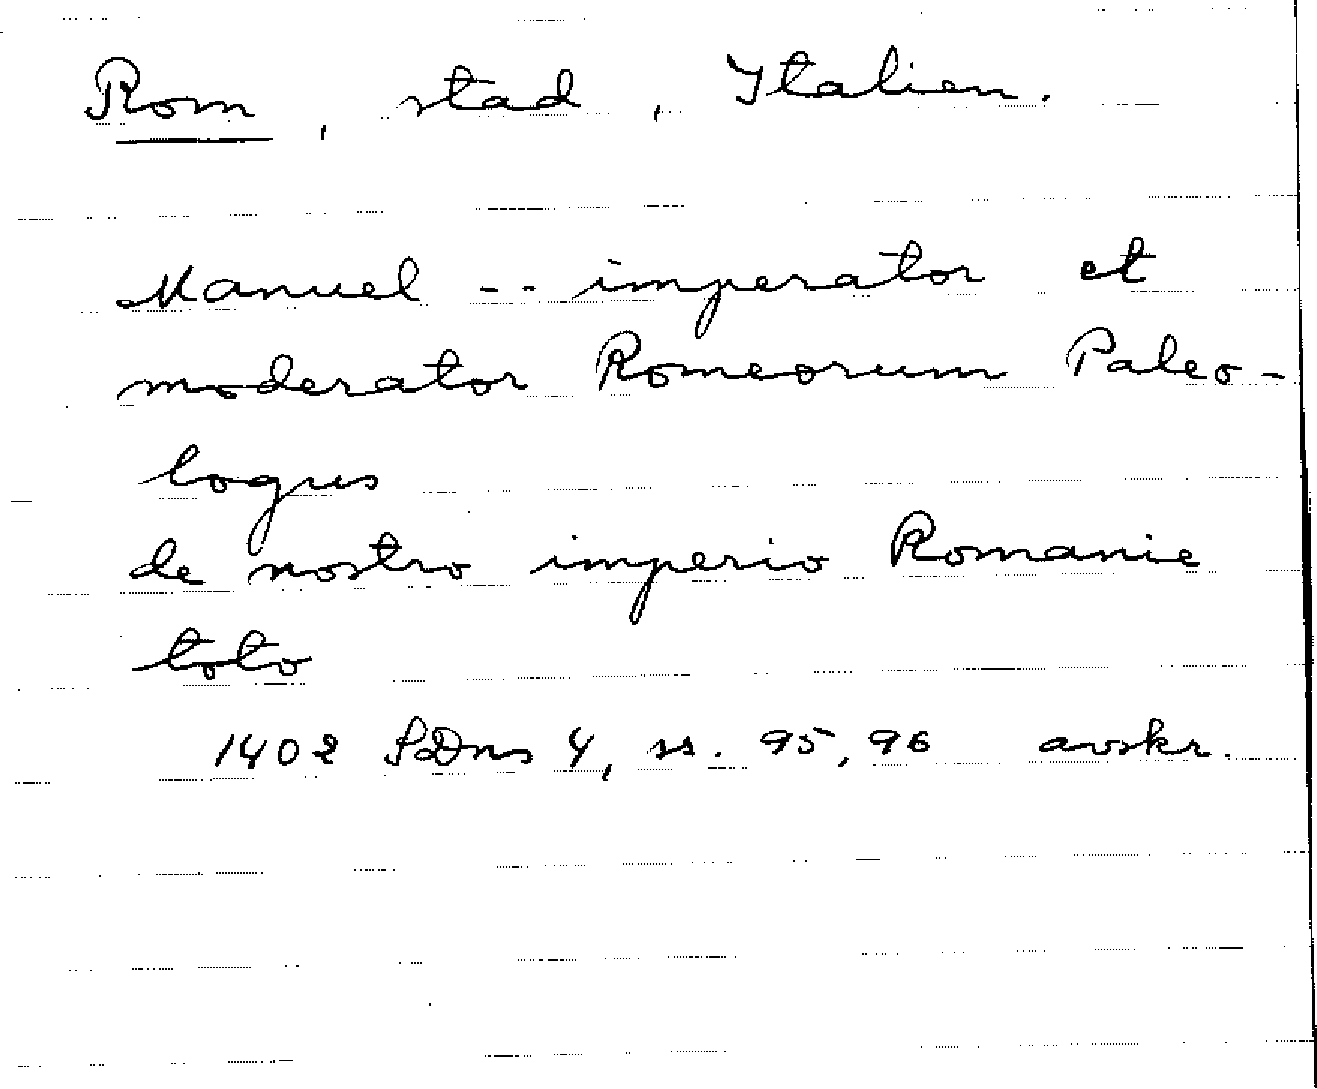 Rom, stad, Italien.
Manuel -- imperator et
moderator Romeorum Paleo-
logus
de nostro imperio Romanie
toto
1402 SDns 4, ss. 95, 96 avskr.